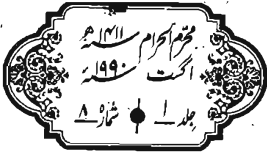 محرّم الحرام ۱۴۱۱ سنہ ھ
اگست ۱۹۹۰ سنہ ء
جلد ۱ شمارہ ۸